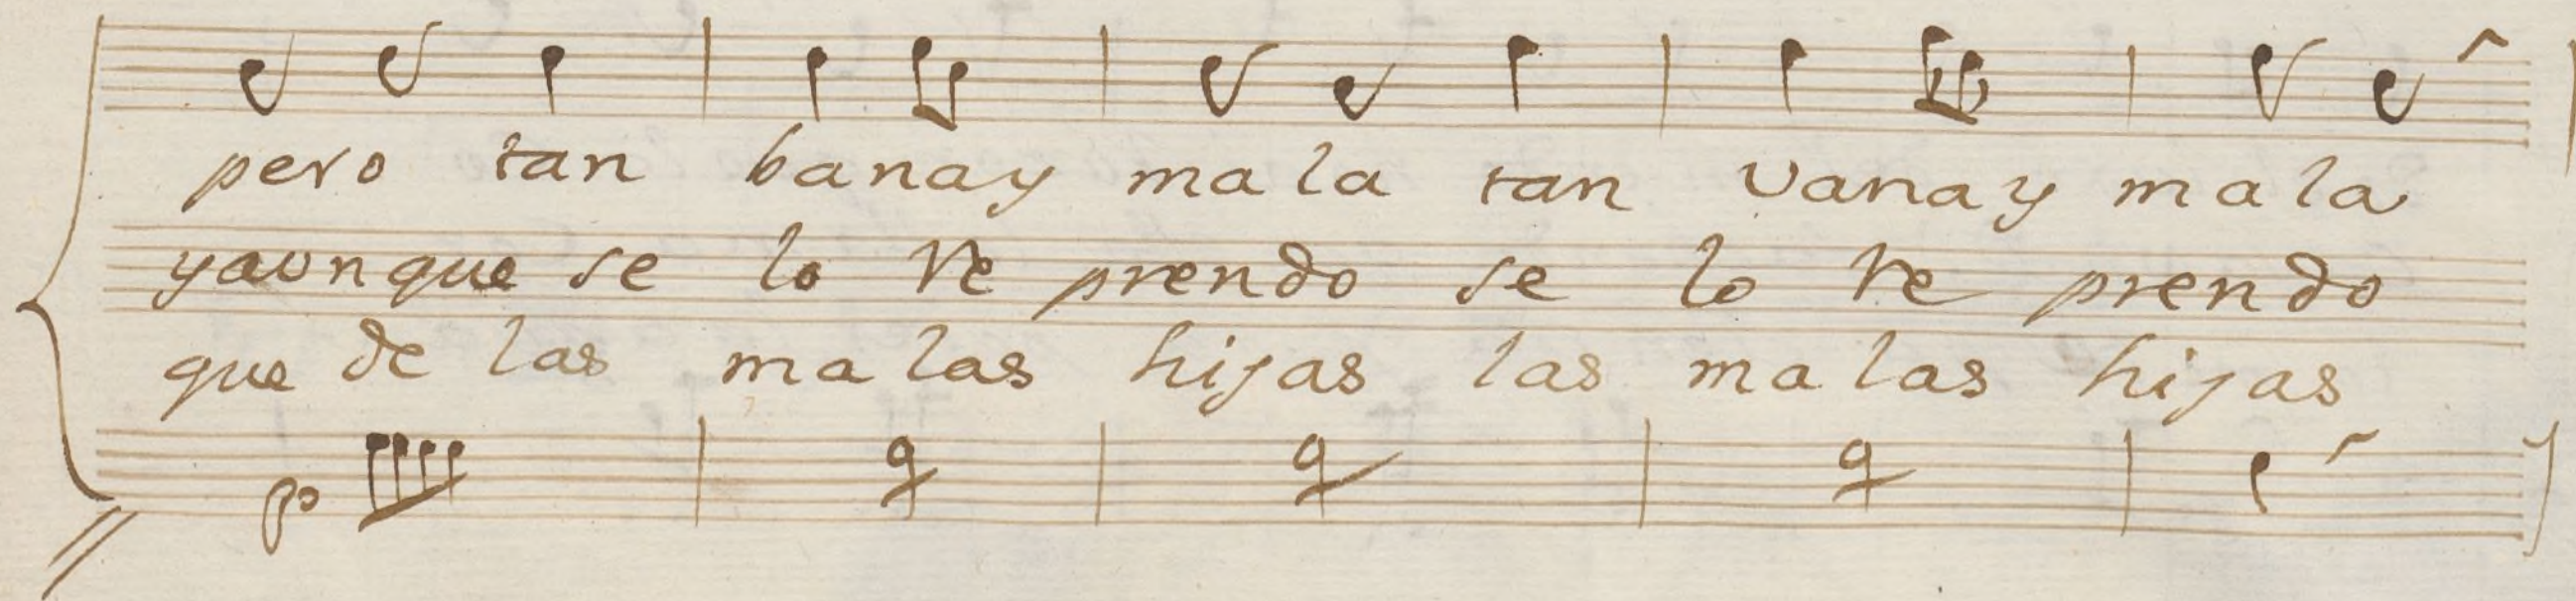 pero tan banay mala tan vanay mala
yaunque se lo Re prendo se lo Re prendo
que de las malas hijas las malas hijas
po